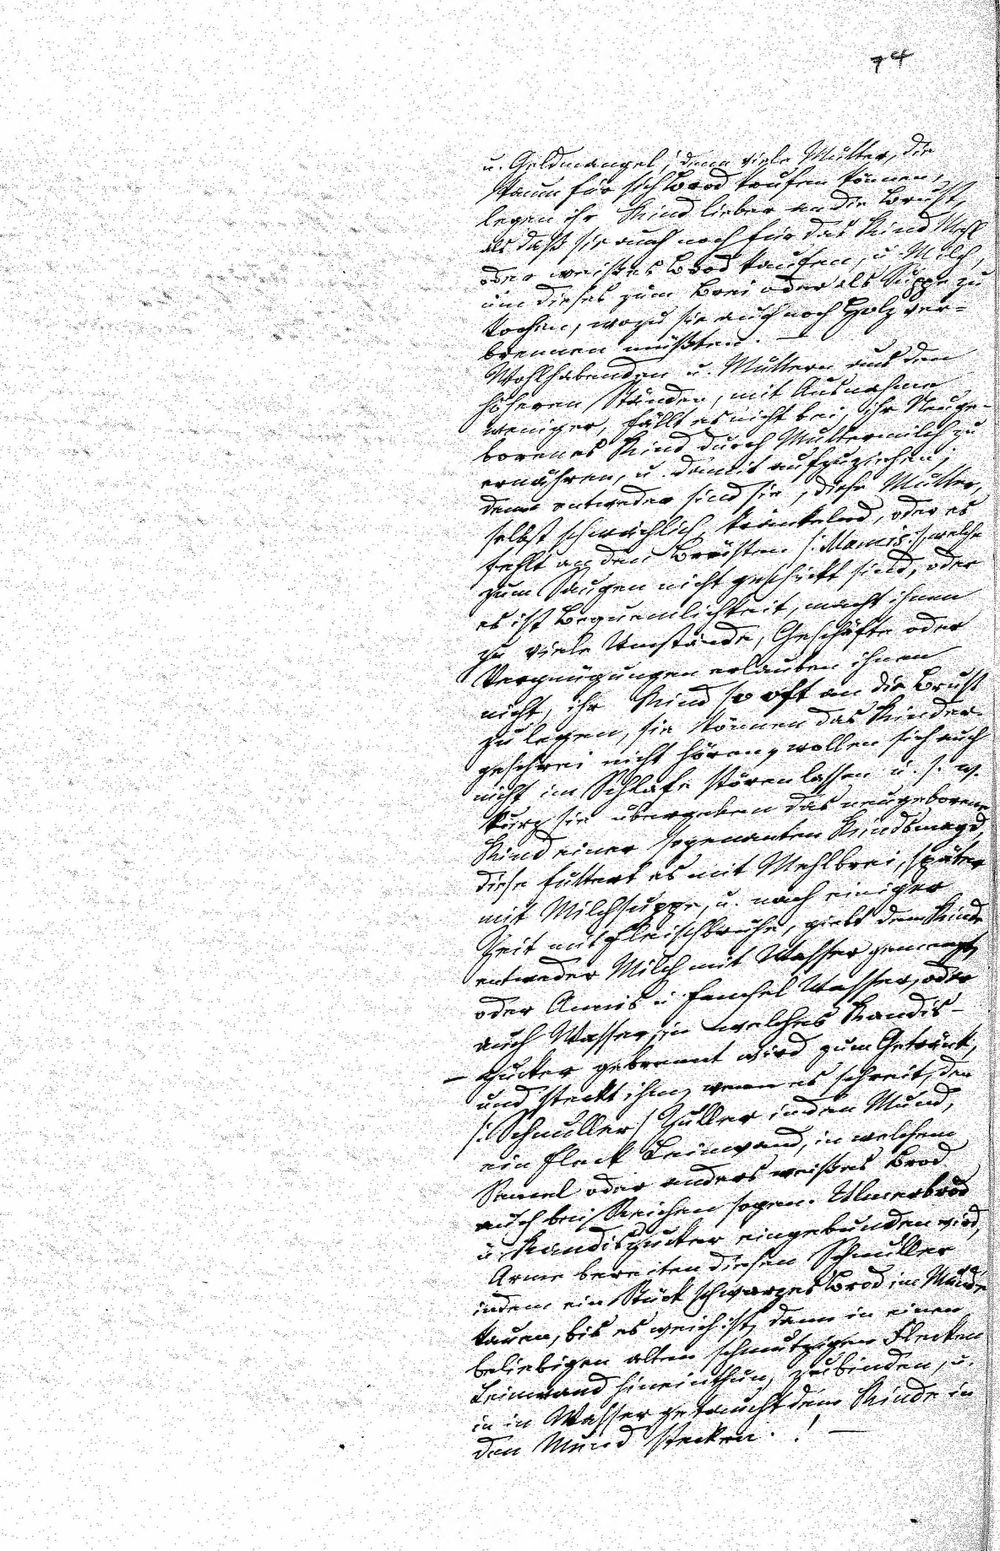 74
u. Geldmangel; denn viele Mütter, die
kaum für sich Brod kaufen können,
legen ihr Kind lieber an die Brust,
als daß sie auch noch für das Kind Mehl
oder weißes Brod kaufen, u. Milch,
um dieses zum Brei oder als Suppe zu
kochen, wozu sie auch noch Holz ver-
brennen müßten. —
Wohlhabenden u. Müttern aus den
höheren Ständen, mit Ausnahme
weniger, fällt es nicht bei, ihr Neuge-
borenes Kind durch Muttermilch zu
ernähren, u. damit aufzuziehen;
denn entweder sind sie, diese Mütter,
selbst schwächlich kränkelnd, oder es
fehlt an den Brüsten /: Mamis :/ welche
zum Saugen nicht geschickt sind, oder
es ist Bequemlichkeit, macht ihnen
zu viele Umstände, Geschäfte oder
Vergnügungen erlauben ihnen
nicht, ihr Kind so oft an die Brust
zu legen, sie können das Kinder-
geschrei nicht hören, wollen sich auch
nicht im Schlafe stören lassen u. s. w.
kurz sie übergeben das neugeborene
Kind einer sogenanten Kindsmagd,
diese füttert es mit Mehlbrei, später
mit Milchsuppe, u. nach einiger
Zeit mit Fleischbrühe, giebt dem Kinde
entweder Milch mit Wasser gemengt,
oder Annis u. Fenchel Wasser, oder
auch Wasser, in welches Kandis-
— zucker gebrennt wird zum Getränk,
und steckt ihm, wenn es schreit, den
/: Schnuller / Zuller in den Mund,
ein Fleck Leinwand, in welchem
Semel oder anders weißes Brod
auch bei Reichen sogen. Ulmerbrod
u. Kandiszucker eingebunden wird,
Arme bereiten diesen Schnuller
indem ein Stück schwarzes Brod im Munde
kauen, bis es weich ist, dann in einen
beliebigen alten schmutzigen Flecken
Leinwand hineinthun, zubinden, u.
in in Wasser getaucht dem Kinde in
den Mund stecken. ! —